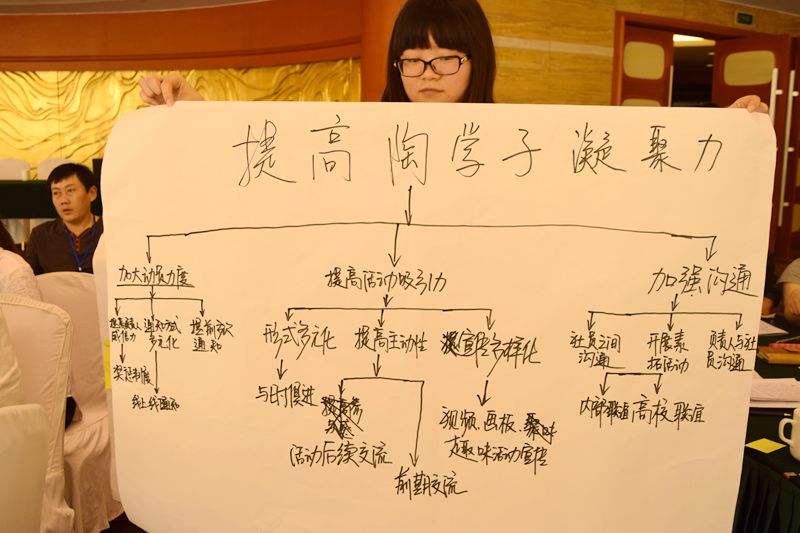 提高陶学子凝聚力
加大动员力度
提高活动吸引力
加强沟通
提高负责人
威信力
通知方式
多元化
提前多次
通知
奖惩制度
线上线下通知
形式多元化
提高主动性
宣传多样化
与时俱进
活动后续交流
前期交流
视频、画板、
趣味活动宣传
社员之间
沟通
开展素
拓活动
负责人与社
员沟通
内部联谊
高校联谊